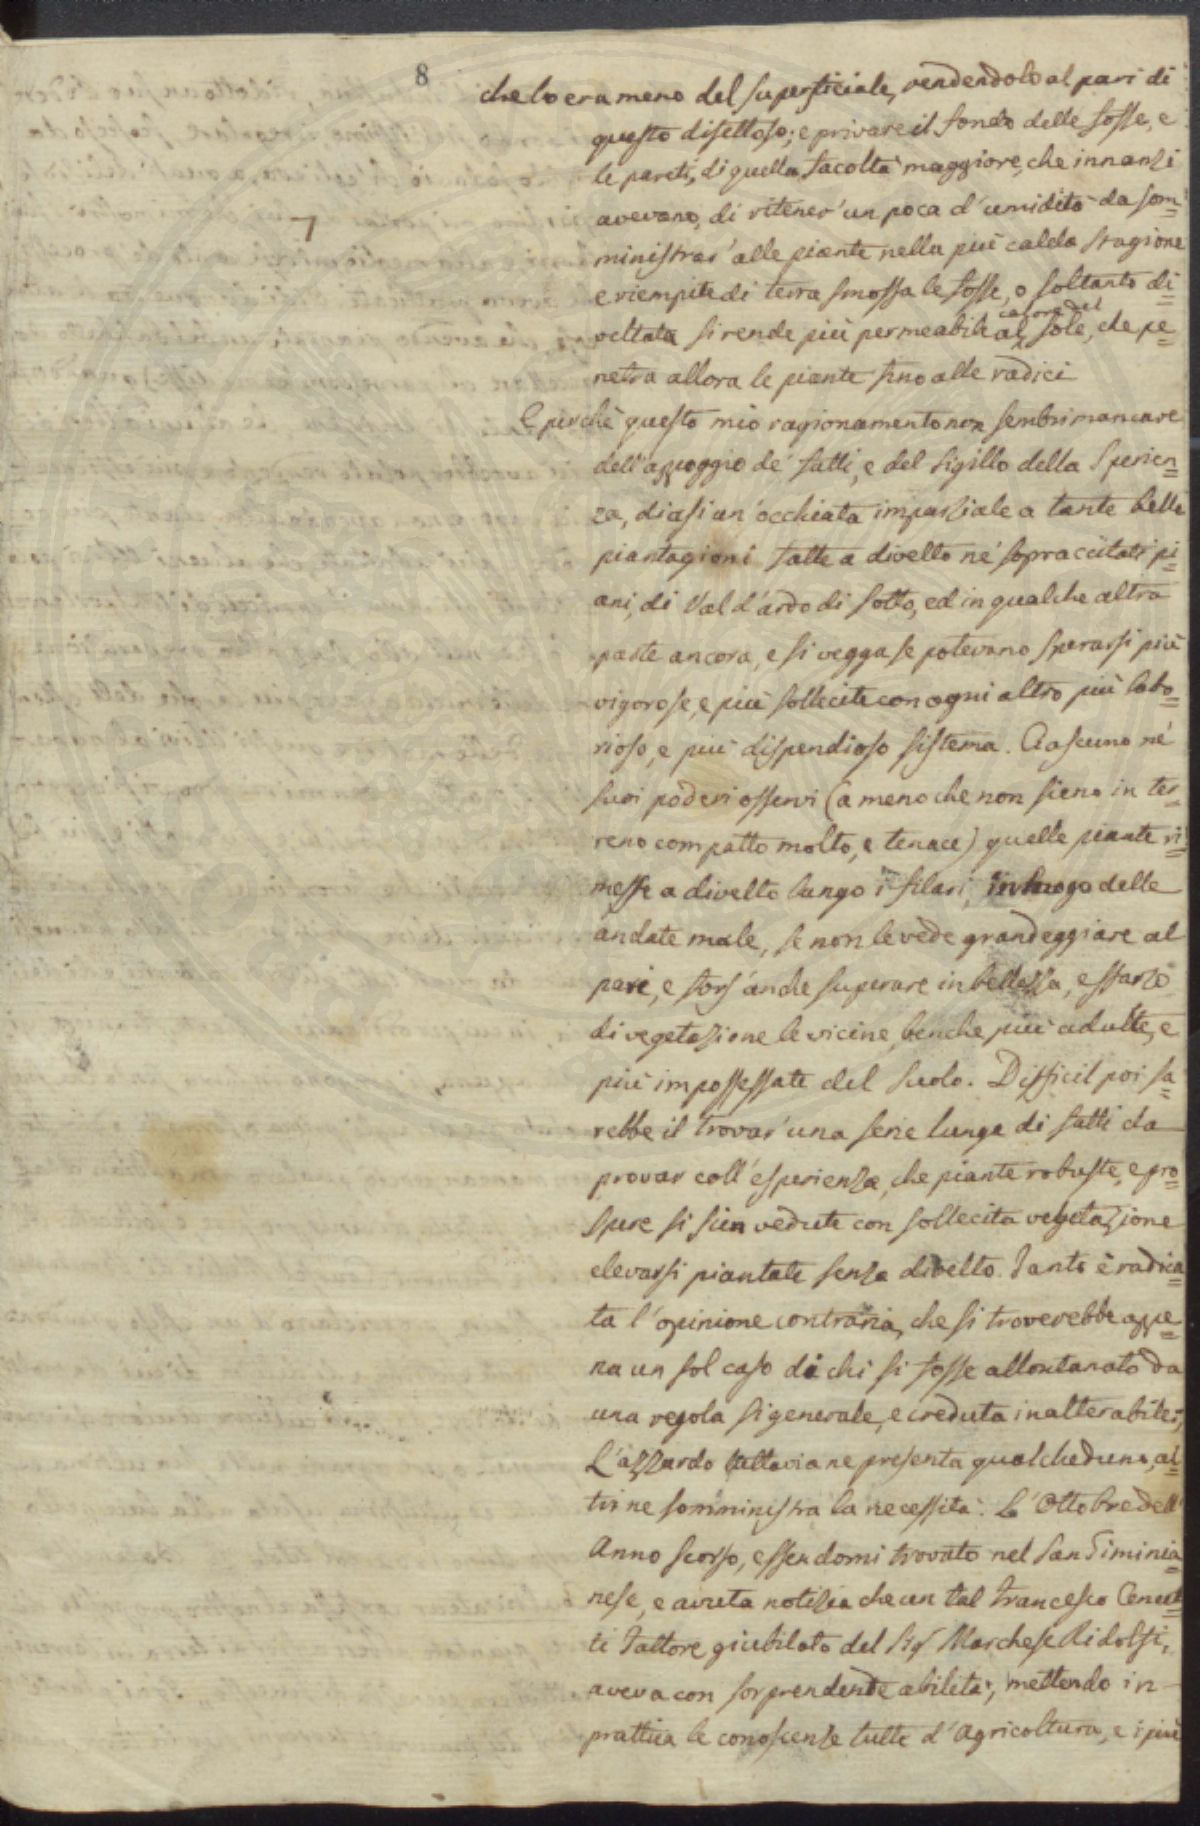 8
che lo era meno del superficiale, rendendolo al pari di
questo difettoso; e privare il fondo delle fosse, e
le pareti, di quella facoltà maggiore, che innanzi
7
avevano, di ritener' un poca d'umidità da som=
ministrar' alle piante nella più calda stagione
e riempite di terra smossa le fosse, o soltanto di=
calore del
voltata si rende più permeabile al sole, che pe=
netra allora le piante fino alle radici
E perchè questo mio ragionamento non sembri mancare
dell'appoggio de' fatti, e del sigillo della Sperien=
za, diasi un'occhiata imparziale a tante belle
piantagioni fatte a divelto ne' sopraccitati pi=
ani, di Val d'ardo di Sotto, ed in qualche altra
parte ancora, e si vegga se potevano sperarsi più
vigorose, e più sollecite con ogni altro più labo=
rioso, e più dispendioso sistema. Ciascuno ne'
suoi poderi osservi (a meno che non sieno in ter=
reno compatto molto, e tenace) quelle piante ri=
messe a divelto lungo i filari, in luogo delle
andate male, se non le vede grandeggiare al
pari, e fors'anche superare in bellezza, e sfarzo
di vegetazione le vicine, benche più adulte, e
più impossessate del suolo. Difficil poi sa=
rebbe il trovar' una serie lunga di fatti da
provar coll'esperienza, che piante robuste, e pro=
spere si sien vedute con sollecita vegetazione
elevarsi piantate senza divelto. Tanto è radica=
ta l'opinione contraria, che si troverebbe appe=
na un sol caso di chi si fosse allontanato da
una regola si generale, e creduta inalterabile;
L'azzardo tuttavia ne presenta qualcheduno, al=
tri ne somministra la necessità. L'Ottobre dell'
Anno scorso, essendomi trovato nel San Giminia=
nese, e avuta notizia che un tal Francesco
ti Fattore giubilato del Sig.r Marchese Ridolfi,
aveva con sorprendente abilità, mettendo in
prattica le conoscenze tutte d'Agricoltura, e i più